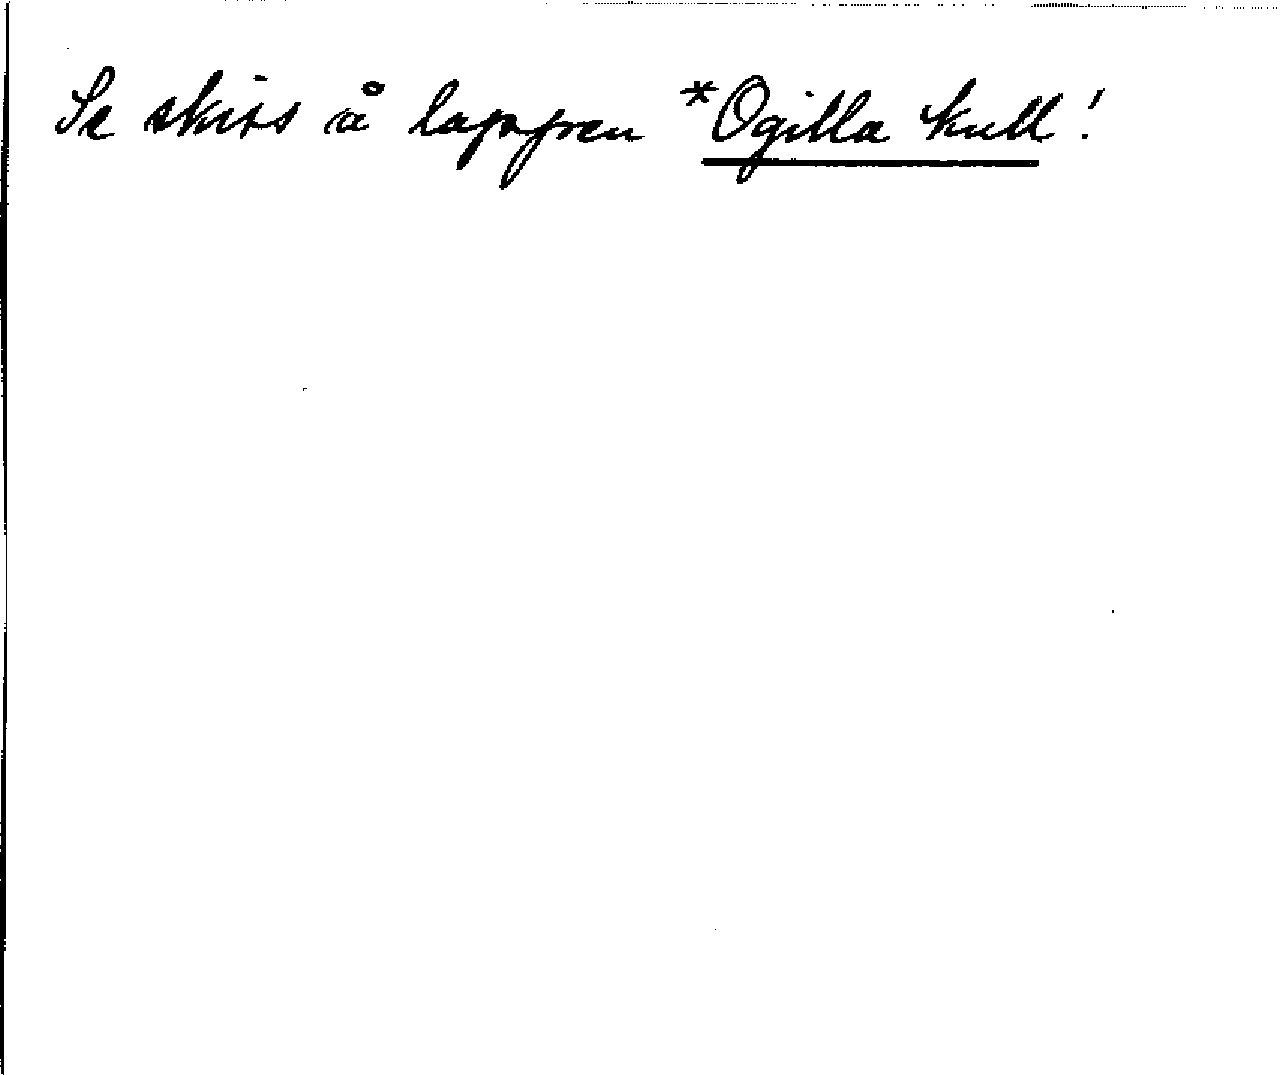 Se skiss å lappen *Ogilla kull!